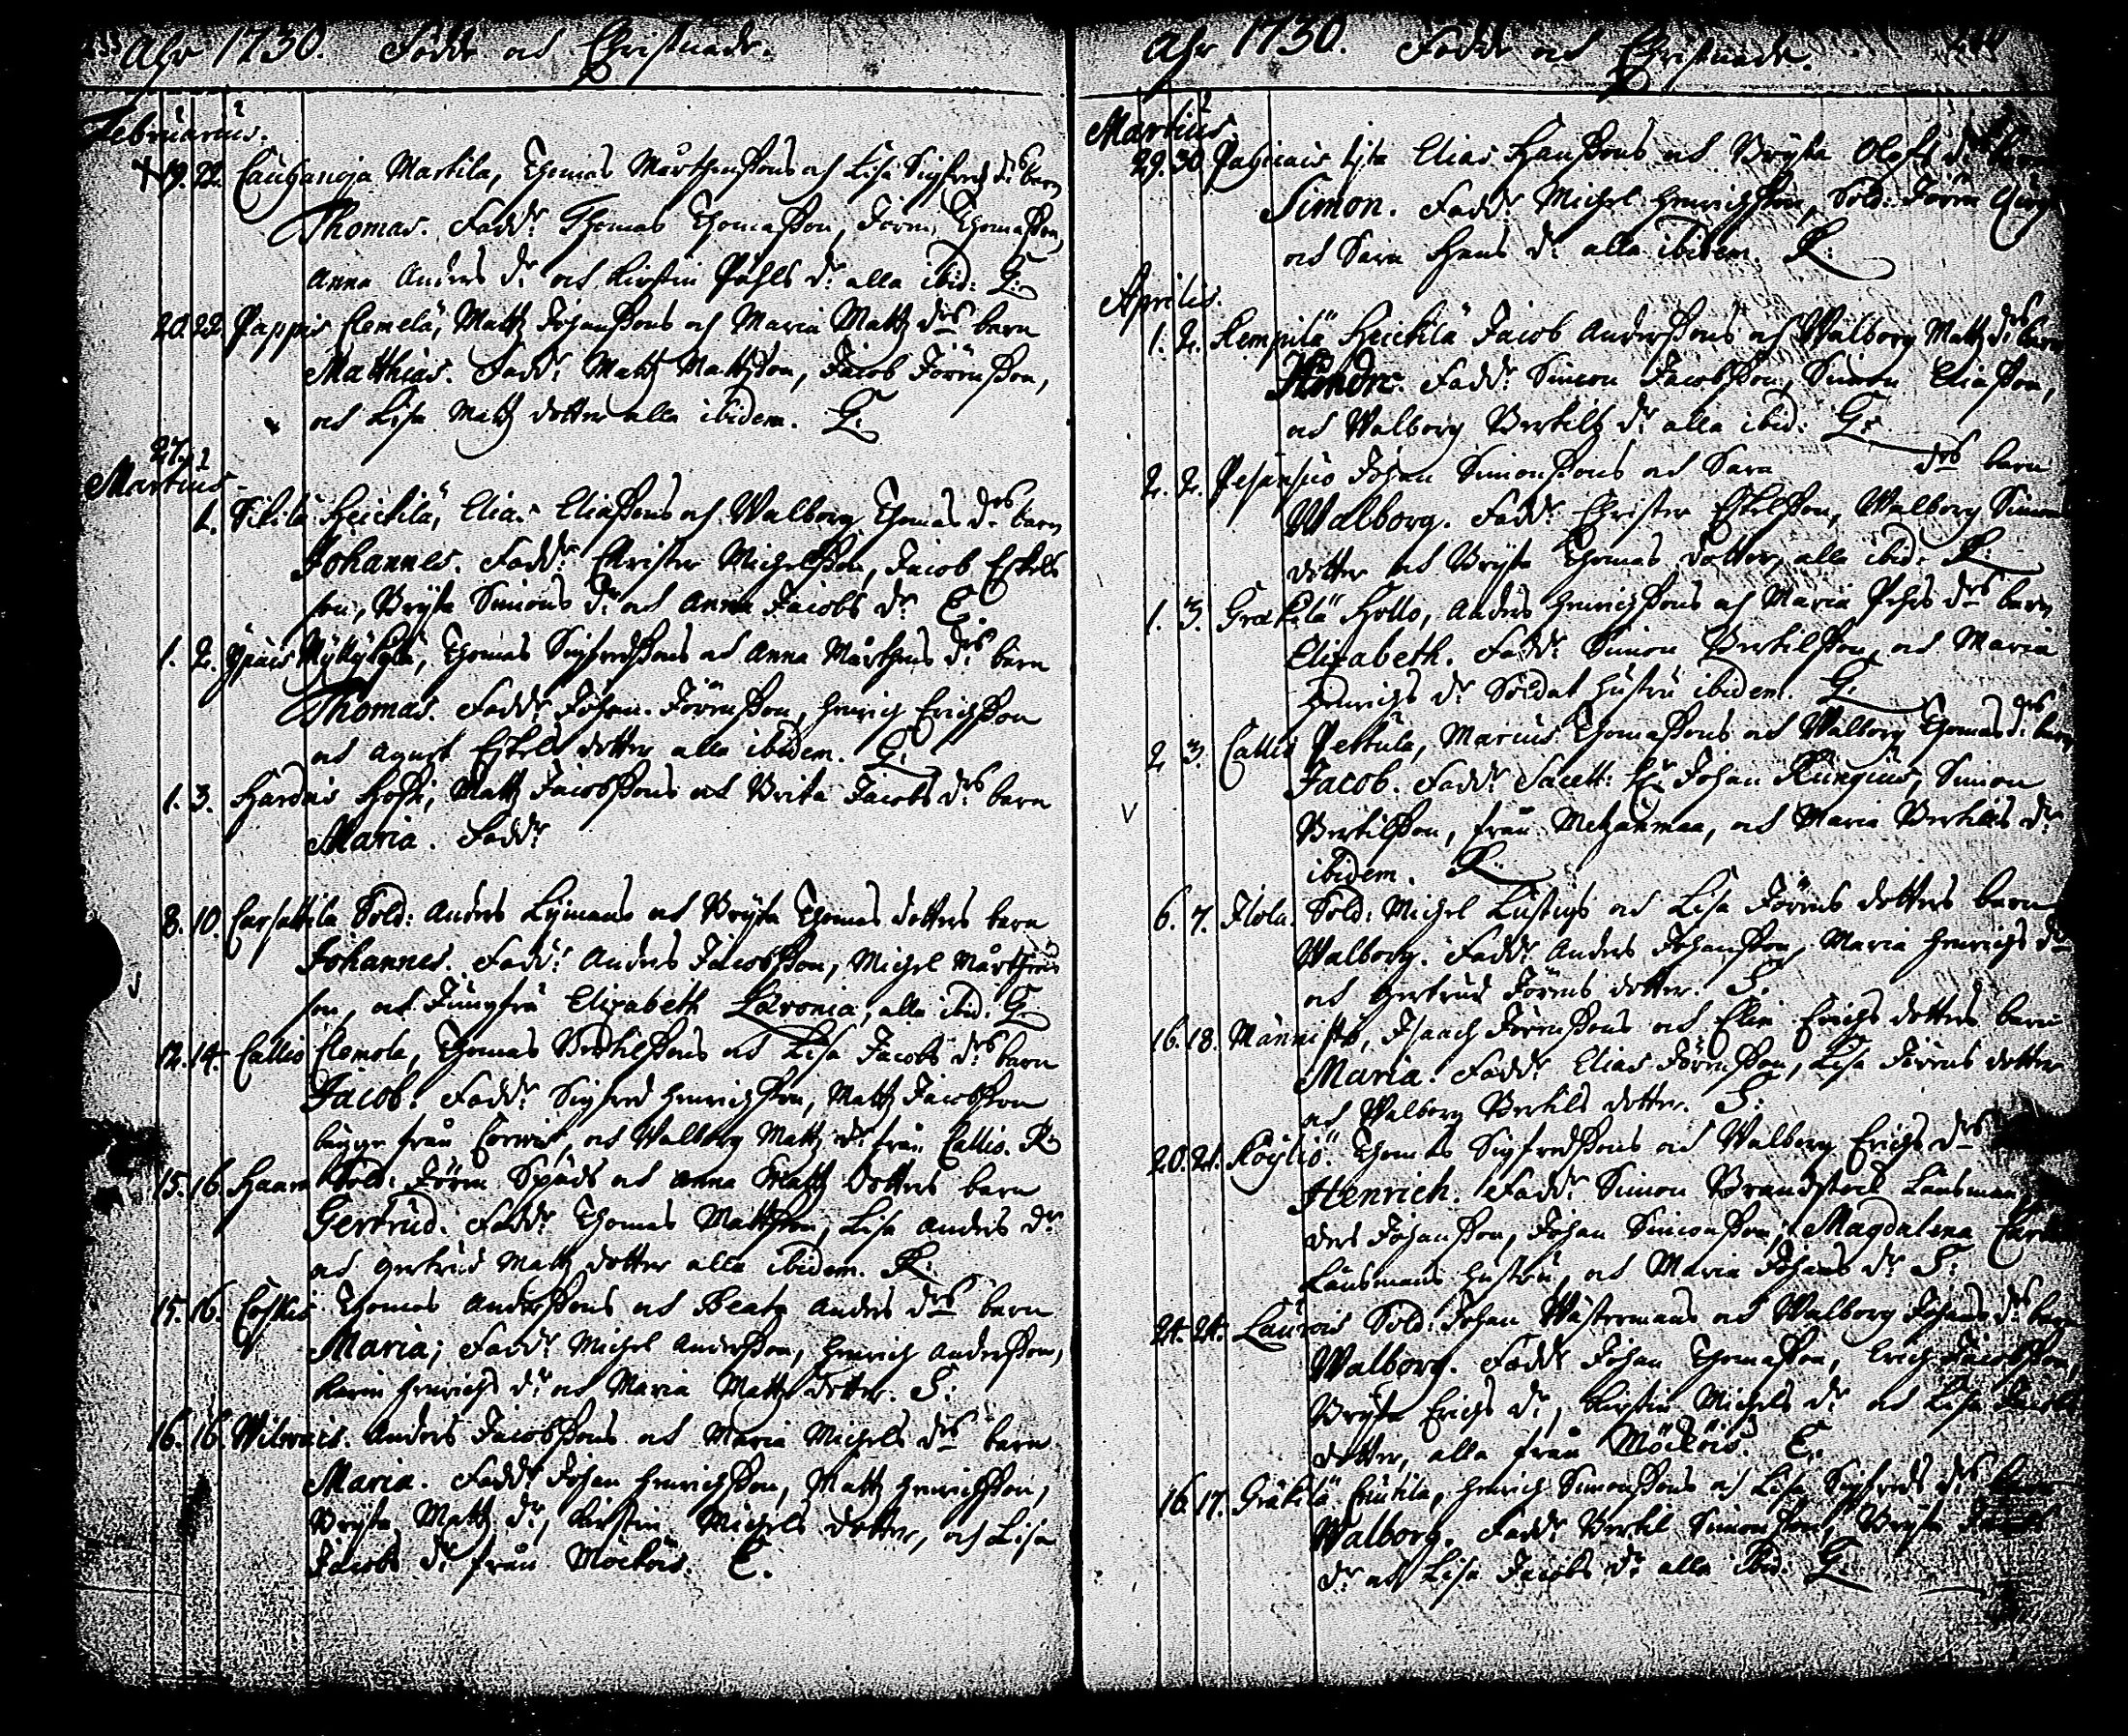 Åhr 1730. Födde och Christnade.
Februarius.
19. 22. Cauhanoja Martila, Thomas Mårthenssons och Lisa Sigfreds drs barn
Thomas. Fadd: Thomas Thomasson, Jören Thomasson,
Anna Anders dr och Kirstin Påhls dr alla ibid: G.
20. 22. Pappis Clemelä, Matts Johanssons och Maria Matts drs barn
Matthias. Fadd: Matts Mattsson, Jacob Jörensson,
och Lisa Matts dotter alla ibidem. G.
27.
Martius
1. Sikilä Heickilä, Elias Eliassons och Walborg Thomas drs barn
Johannes. Fadd: Christer Michelsson, Jacob Eskels
son, Bryta Simons dr och Anna Jacobs dr C.
1. 2. Ypäis Myllykylä, Thomas Sigfredssons och Anna Mårthens drs barn
Thomas. Fadd: Johan Jörensson, Henrich Erichsson
och Agnet Eskels dotter alla ibidem. G.
1. 3. Hardus Hossi, Matts Jacobssons och Brita Jacobs drs barn
Maria. Fadd:
8. 10. Carsattila Sold: Anders Lijmans och Bryta Thomas dotters barn
Johannes. Fadd: Anders Jacobsson, Michel Mårthens
son, och Jungfru Elizabeth Lavonia, alla ibid. G.
12. 14. Callis Clemola, Thomas Bertilssons och Lisa Jacobs drs barn
Jacob. Fadd: Sigfred Henrichsson, Matts Jacobsson
bägge från Corwis, och Walborg Matts dr från Callis. R.
15. 16. Haaro Sold: Jören Späds och Anna Matts dotters barn
Gertrud. Fadd: Thomas Mattsson, Lisa Anders dr
och Gertrud Matts dotter alla ibidem. R.
15. 16. Coskis Thomas Anderssons och Beata Anders drs barn
Maria; Fadd: Michel Andersson, Henrich Andersson,
Karin Henrichs dr och Maria Matts dotter. S.
16. 16. Wilwais. Anders Jacobssons och Maria Michels drs barn
Maria. Fadd: Johan Henrichsson, Matts Henrichsson,
Bryta Matts dr, Kirstin Michels dotter, och Lisa
Jacobs dr från Möcköis. C.
Åhr 1730. Födde och Christnade.
Martius.
29. 30. Elias Hanssons och Bryta Olofs drs barn
Simon. Fadd: Michel Henrichsson, Sold: Jören
och Sara Hans dr alla ibidem. R.
Aprilis.
1. 2. Kempilä Heickilä Jacob Anderssons och Walborg Matts drs barn
Fadd: Simon Jacobsson, Simon Eliasson,
och Walborg Bertils dr alla ibid: G.
2. 2. Pesänsuo Johan Simonssons och Sara drs barn
Walborg. Fadd: Christer Eskelsson, Walborg Simons
dotter och Bryta Thomas dotter, alla ibid: R.
1. 3. Gräkilä Hollo, Anders Henrichssons och Maria Pehrs drs barn
Elizabeth. Fadd: Simon Bertilsson, och Maria
Henrichs dr Soldat hustru ibidem. G.
2. 3. Callis Pettula, Marcus Thomassons och Walborg Thomas drs barn
Jacob. Fadd: Sacell: Hr Johan Rungius, Simon
Bertilsson, från Metzänmaa, och Maria Bertils dr
ibidem. R.
6. 7. Ilola. Sold: Michel Lustigs och Lisa Jörens dotters barn
Walborg. Fadd: Anders Johansson, Maria Henrichs dr
och Gertrud Jörens dotter. S.
16. 18. Männistö, Isaach Jörenssons och Elin Erichs dotters barn
Maria. Fadd: Elias Jörensson, Lisa Jörens dotter
och Walborg Bertils dotter. S:
20. 21. Köyliö. Thomas Sigfredssons och Walborg Erichs drs
Henrich. Fadd: Simon Brandstedt Länsman,
ders Johansson, Johan Simonsson, Magdalena
Länsmans hustru, och Maria Johans dr S:
24. 24. Laurois Sold: Johan Wästermans och Walborg Johans drs barn
Walborg. Fadd: Johan Thomasson, Erich Jacobsson,
Bryta Erichs dr, Kirstin Michels dr och Lisa Jacobs
dotter, alla från Möcköis. C.
16. 17. Gräkilä Cuutila, Henrich Simonssons och Lisa Sigfreds drs barn
Walborg. Fadd: Bertil Simonsson, Bryta Jacobs
dr och Lisa Jacobs dr alla ibid: G.